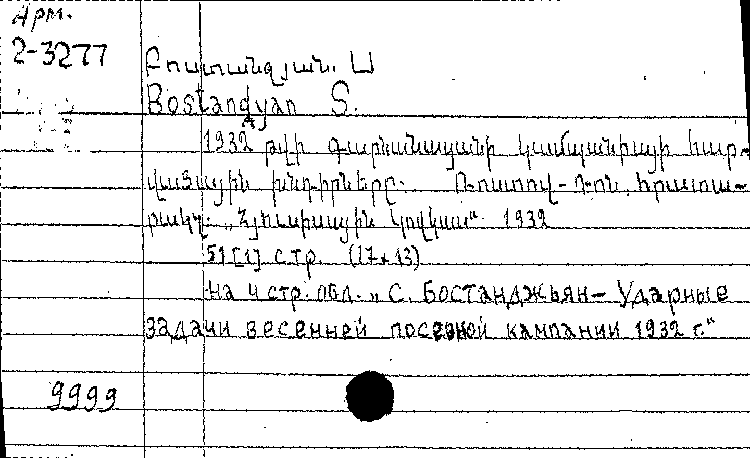 Арм.
2-3277
Բոստանջյան. Ս
Bostandyan S.
1932 թվի գարնանացանի կամպանիայի հար-
վածային խնդիրները. Ռոստով-Դոն, հրատա-
րակչ. „Հյուսիսային կովկաս“ 1932
51[1] стр. (17×13)
На 4 стр. обл. „С. Бостанджьян – Ударные
задачи весенней посевной кампании 1932 г.“
9999